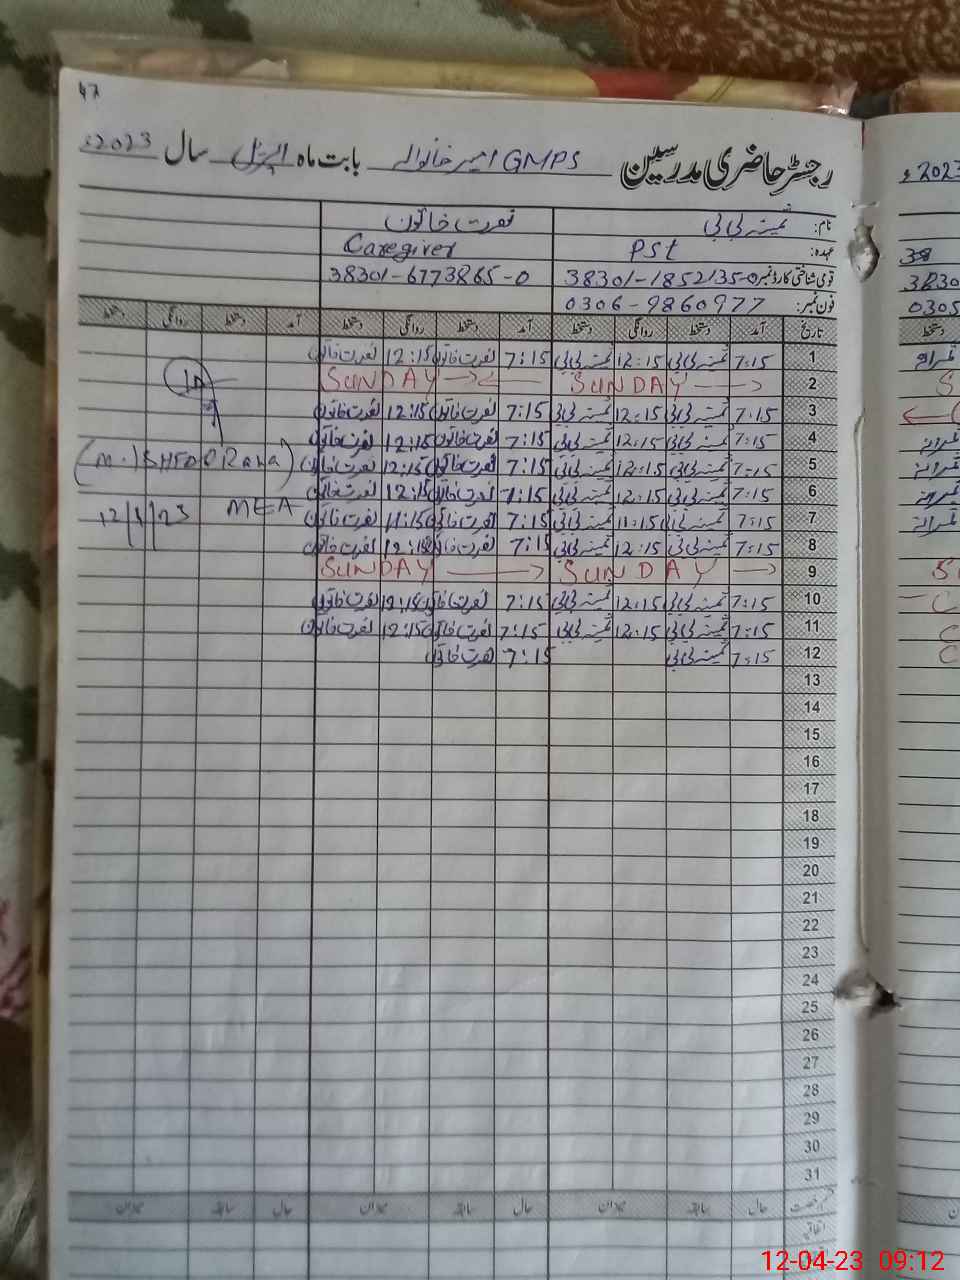 47
رجسٹر حاضری مدرسین GMPS امیر خانوالہ بابت ماہ اپریل سال 2023ء
نام: ثمینہ بی بی نصرت خاتون
عہدہ: PSt Caregiver
قومی شناختی کارڈ نمبر 38301-1852135-0 38301-6773865-0
فون نمبر: 0306-9860977
تاریخ آمد دستخط روانگی دستخط آمد دستخط روانگی دستخط آمد دستخط روانگی دستخط
1 7:15 ثمینہ بی بی 12:15 ثمینہ بی بی 7:15 نصرت خاتون 12:15 نصرت خاتون
2 SUNDAY SUNDAY
3 7:15 ثمینہ بی بی 12:15 ثمینہ بی بی 7:15 نصرت خاتون 12:15 نصرت خاتون
4 7:15 ثمینہ بی بی 12:15 ثمینہ بی بی 7:15 نصرت خاتون 12:15 نصرت خاتون
5 7:15 ثمینہ بی بی 12:15 ثمینہ بی بی 7:15 نصرت خاتون 12:15 نصرت خاتون
6 7:15 ثمینہ بی بی 12:15 ثمینہ بی بی 7:15 نصرت خاتون 12:15 نصرت خاتون
MEA
7 7:15 ثمینہ بی بی 11:15 ثمینہ بی بی 7:15 نصرت خاتون 11:15 نصرت خاتون
12/4/23
8 7:15 ثمینہ بی بی 12:15 ثمینہ بی بی 7:15 نصرت خاتون 12:15 نصرت خاتون
9 SUNDAY SUNDAY
10 7:15 ثمینہ بی بی 12:15 ثمینہ بی بی 7:15 نصرت خاتون 12:15 نصرت خاتون
11 7:15 ثمینہ بی بی 12:15 ثمینہ بی بی 7:15 نصرت خاتون 12:15 نصرت خاتون
12 7:15 ثمینہ بی بی 7:15 نصرت خاتون
13
14
15
16
17
18
19
20
21
22
23
24
25
26
27
28
29
30
31
حال سابقہ میزان حال سابقہ میزان حال سابقہ میزان
اتفاقیہ
2023ء
38
3830
0305
دستخط
12-04-23 09:12